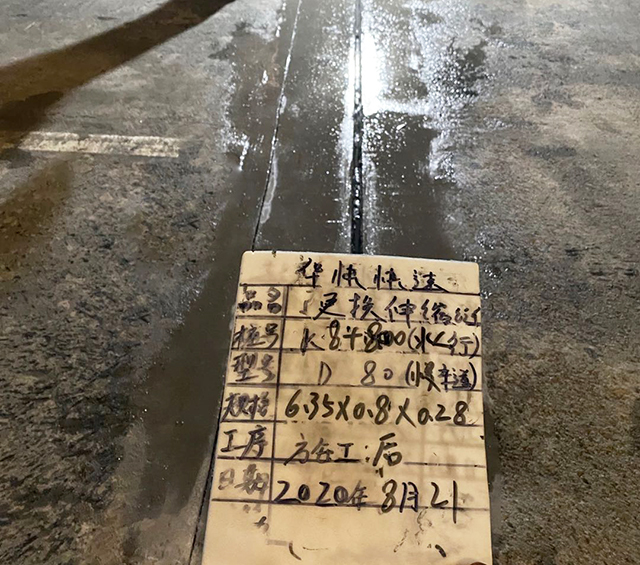 华快快速
品名 更换伸缩缝
桩号 K8+800(北行)
型号 D 80 (慢车道)
规格 6.35X0.8X0.28
工序 施工:后
日期 2020年8月21